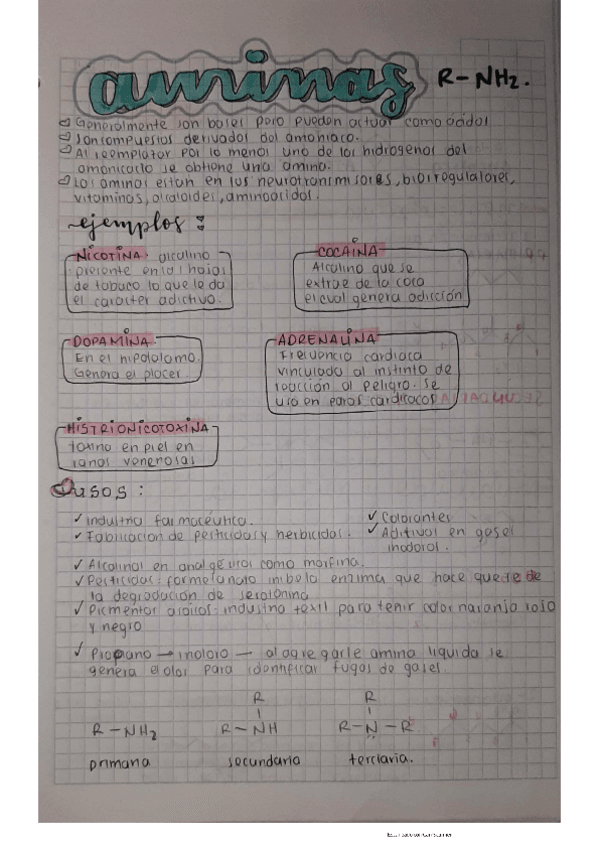 aminas R-NH2.
Generalmente son bases pero pueden actuar como ácidos
son compuestos derivados del amoniaco.
Al reemplazar por lo menos uno de los hidrogenos del
amoniaco se obtiene una amina.
Las aminas estan en los neurotransmisores, biorreguladores,
vitaminas, alcaloides, aminoacidos.
ejemplos:
NICOTINA: alcalino
presente en las hojas
de tabaco lo que le da
el carácter adictivo.
COCAÍNA
Alcalino que se
extrae de la coca
el cual genera adicción
DOPAMINA
En el hipotalamo.
Genera el placer.
ADRENALINA
Frecuencia cardiaca
vinculado al instinto de
reacción al peligro. Se
usa en paros cardiacos
HISTRIONICOTOXINA
toxina en piel en
ranas venenosas
usos:
✓ industria farmacéutica.
✓ Fabricacion de pesticidas y herbicidas.
✓ Colorantes
✓ Aditivos en gases
inodoros.
✓ Alcalinos en analgésicos como morfina.
✓ Pesticidas: formetanato inibela enzima que hace que se de
la degradación de serotonina
✓ Pigmentos azoicos: industria textil para teñir color naranja rojo
y negro
✓ Propano → inoloro → al agregarle amina liquida se
genera el olor para identificar fugas de gases.
R-NH2
R
R-NH
R
R-N-R
primaria secundaria terciaria.